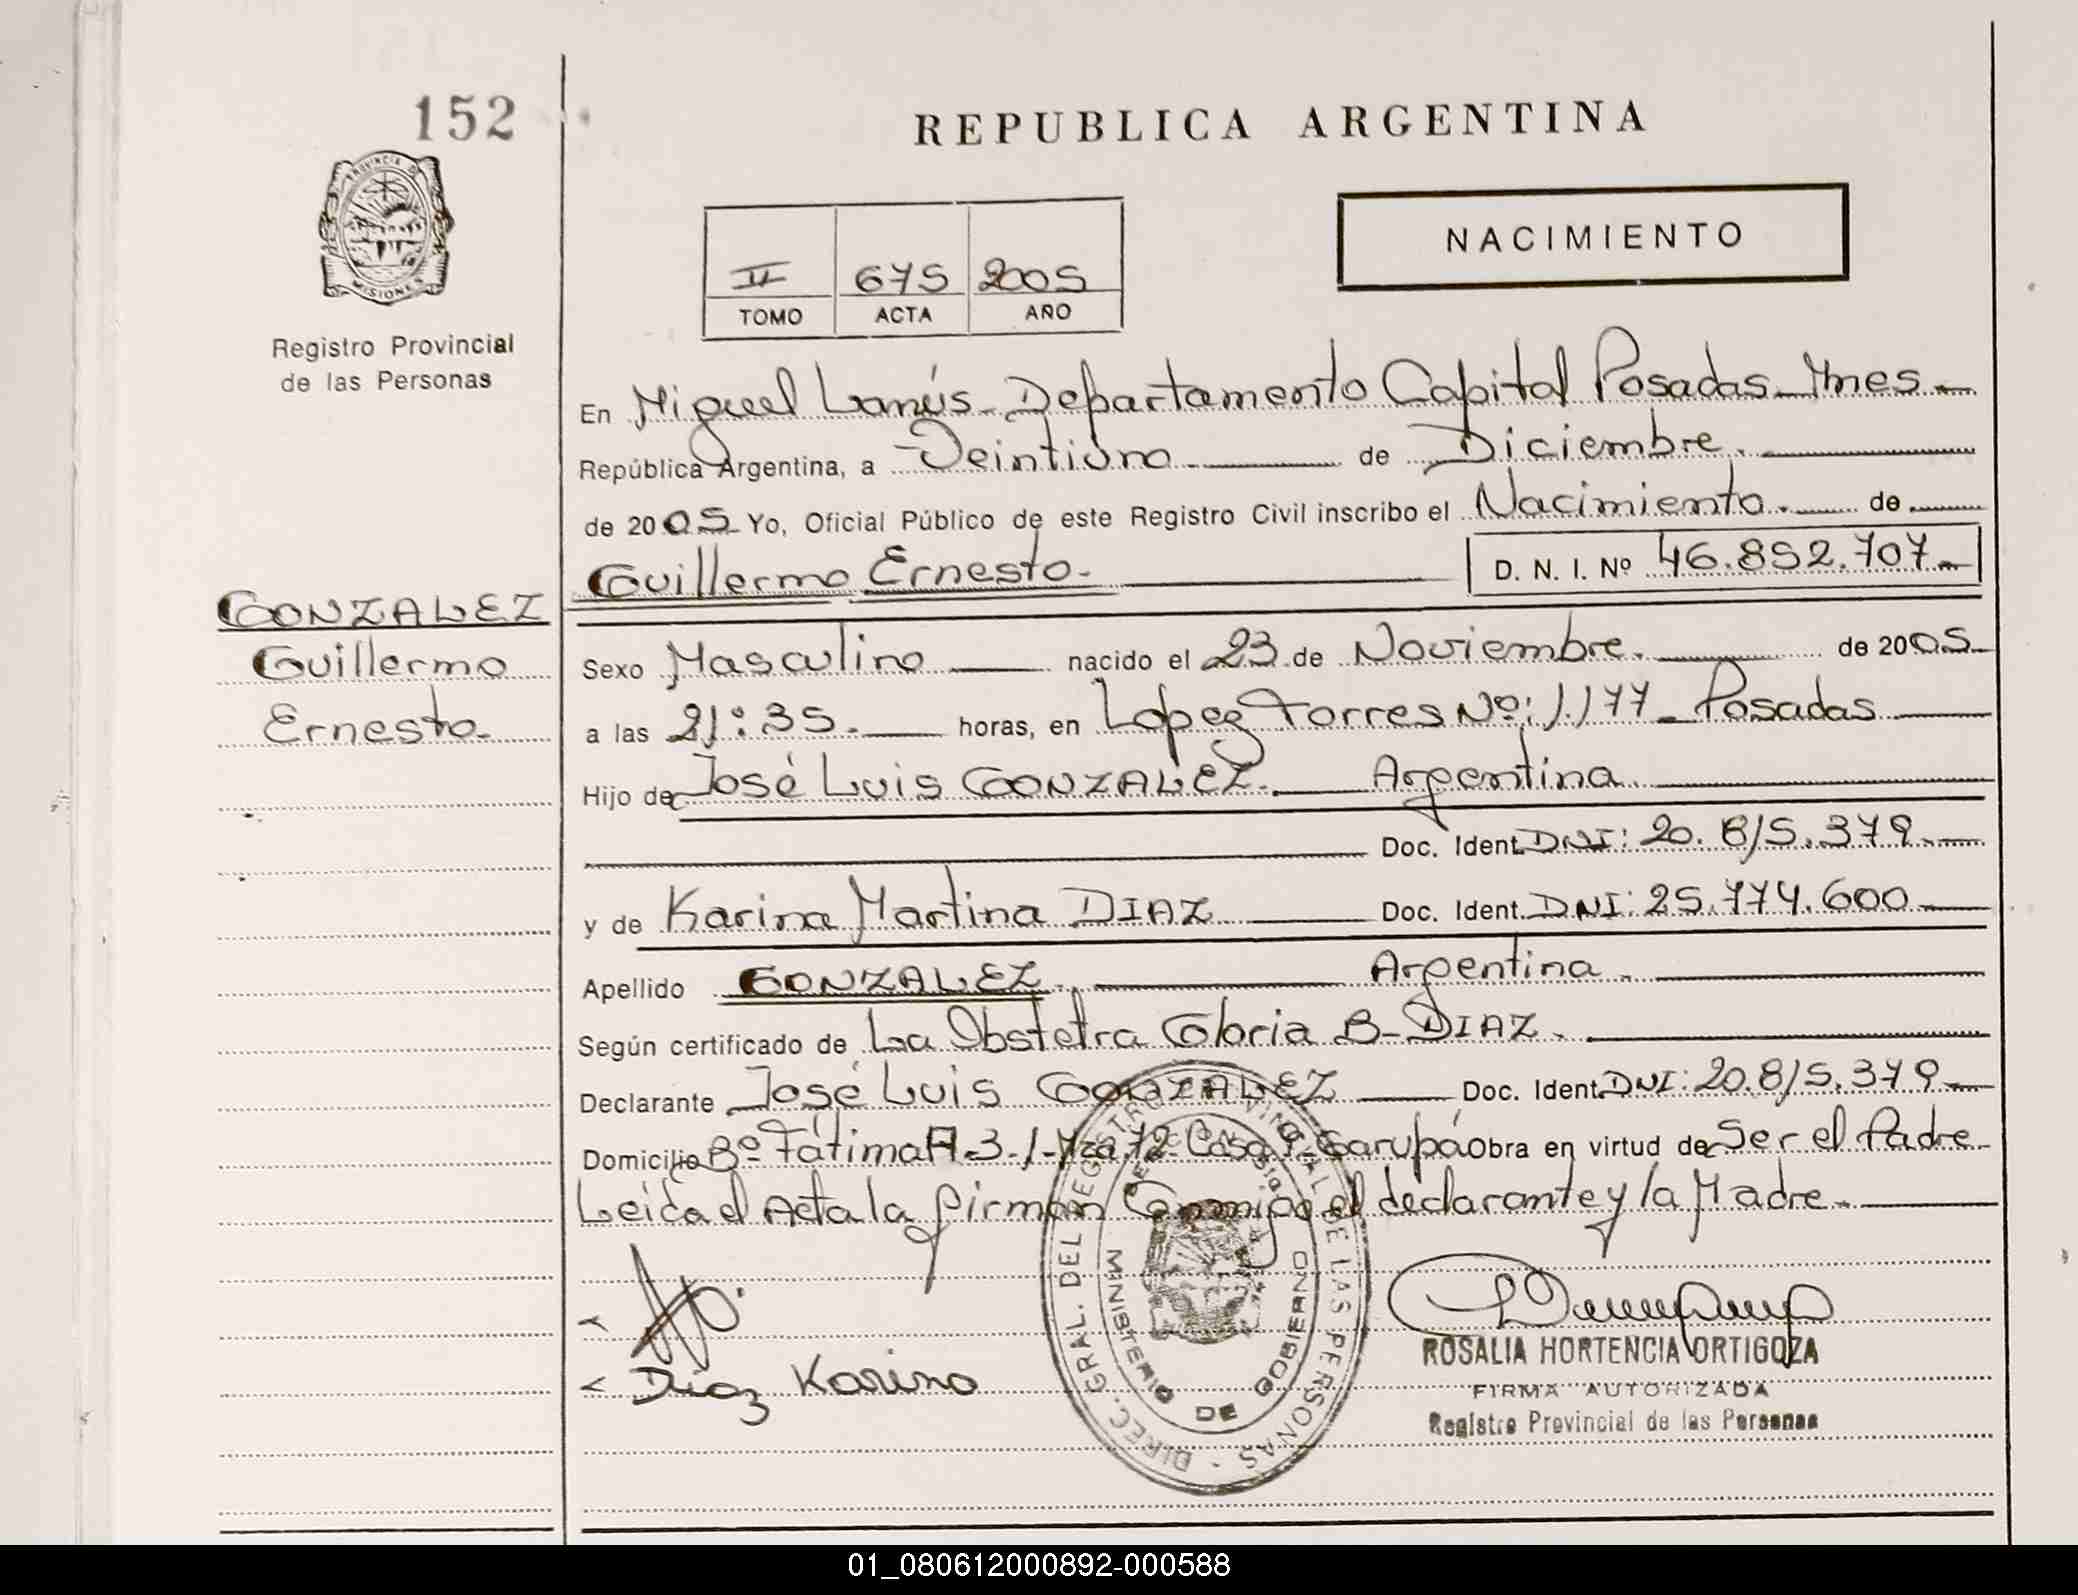 152
REPUBLICA ARGENTINA
PROVINCIA DE
MISIONES
Registro Provincial
de las Personas
NACIMIENTO
II 675 2005
TOMO ACTA AÑO
En Miguel Lanús - Departamento Capital Posadas - Mnes -
República Argentina, a Veintiuno de Diciembre.
de 2005 Yo, Oficial Público de este Registro Civil inscribo el Nacimiento. de
Guillermo Ernesto. D. N. I. Nº 46.852.707
GONZALEZ
Guillermo
Ernesto.
Sexo Masculino nacido el 23 de Noviembre. de 2005
a las 21:35. horas, en Lopez Torres Nº: 1.177 - Posadas
Hijo de José Luis GONZALEZ. Argentina.
Doc. Ident. DNI: 20.815.379.
y de Karina Martina DIAZ Doc. Ident. DNI: 25.774.600
Apellido GONZALEZ. Argentina.
Según certificado de La Obstetra Gloria B. DIAZ.
Declarante José Luis GONZALEZ Doc. Ident. DNI: 20.815.379
Domicilio Bº Fátima A.3-1-Mza 72 Casa Garupá Obra en virtud de Ser el Padre
Leida el Acta la firman Conmigo el declarante y la Madre.
Diaz Karina
DIREC. GRAL. DEL REGISTRO PROVINCIAL DE LAS PERSONAS
MINISTERIO DE GOBIERNO
ROSALIA HORTENCIA ORTIGOZA
FIRMA AUTORIZADA
Registro Provincial de las Personas
01_080612000892-000588